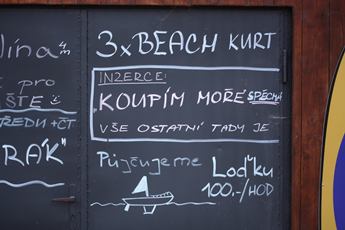 3x BEACH KURT
INZERCE:
KOUPÍM MOŘE SPĚCHÁ
VŠE OSTATNÍ TADY JE
Půjčujeme Loďku
100,-/HOD
lína
pro
ŠTĚ
STŘEDU + ČT
RÁK"